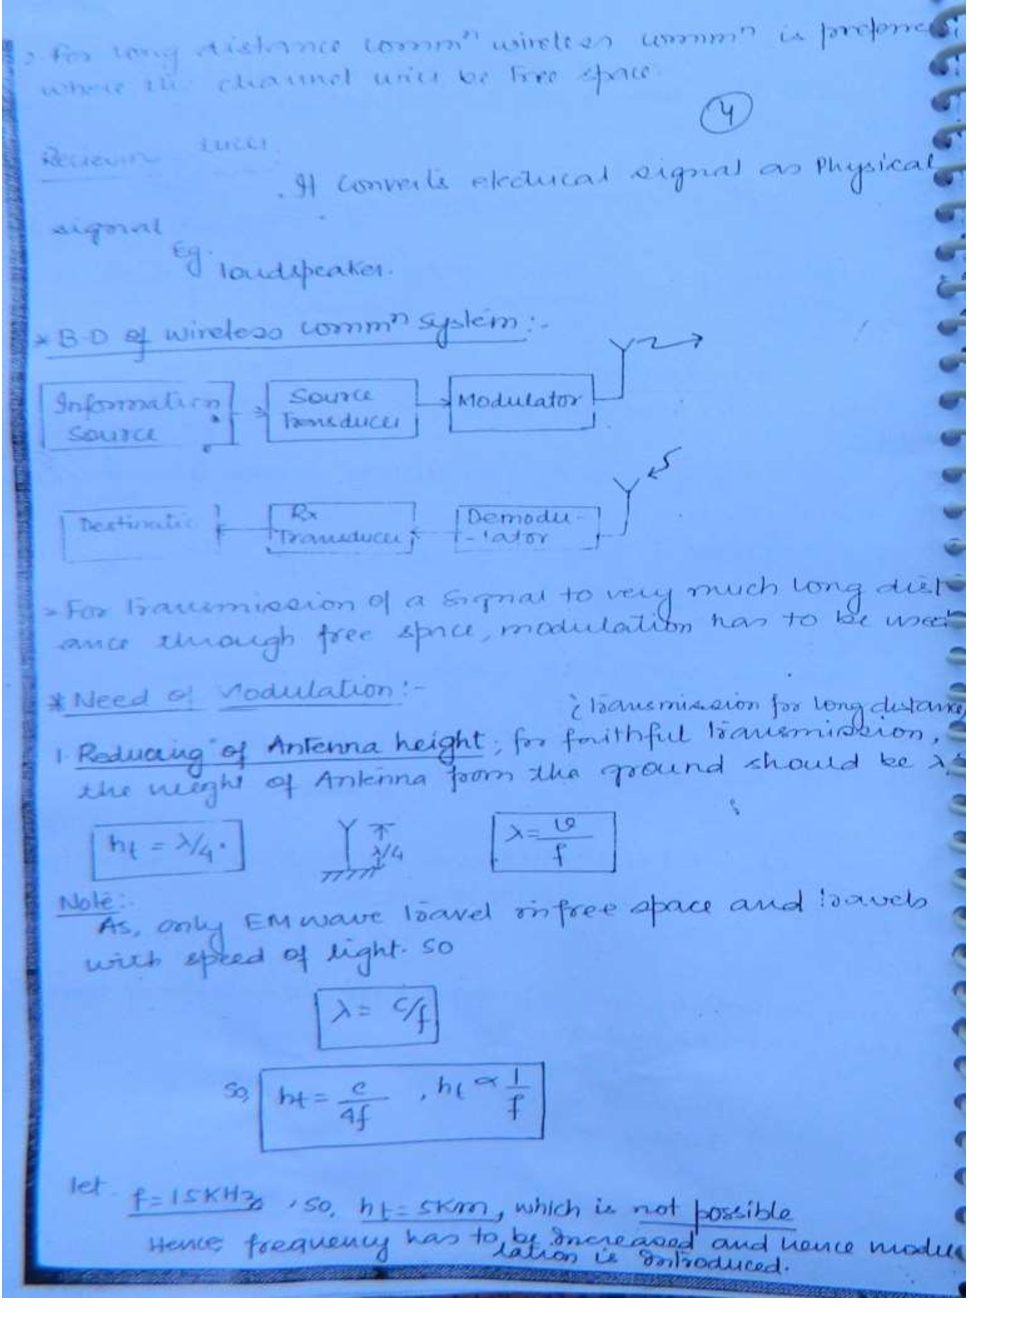 > For long distance comm^n wireless comm^n is prefer
where the channel will be free space.
4
Reciev
. It converts electrical signal as Physical
signal
Eg. loudspeaker.
* B.D of wireless comm^n system :-
Information Source
Source Transducer
Modulator
Destinatio
Rx Transducer
Demodu-lator
> For Transmission of a signal to very much long dist
ance through free space, modulation has to be used
* Need of Modulation :-
transmission for long distance
1. Reducing of Antenna height ; for faithful transmission,
the height of Antenna from the ground should be λ
ht = λ/4 .
λ/4
λ = v/f
Note:-
As, only EM wave travel in free space and travels
with speed of light. So
λ = c/f
So, ht = c/4f , ht ∝ 1/f
let f = 15KHz , so, ht = 5Km, which is not possible
Hence, frequency has to be increased and hence modu
lation is introduced.